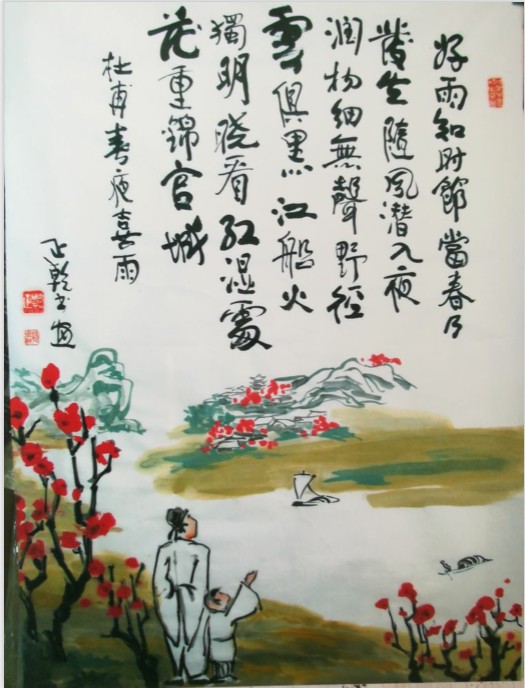 好雨知时節當春乃
發生隨风潜入夜
润物细無聲野徑
雲俱黑江船火
獨明晓看红湿處
花重錦官城
杜甫春夜喜雨
乾书画